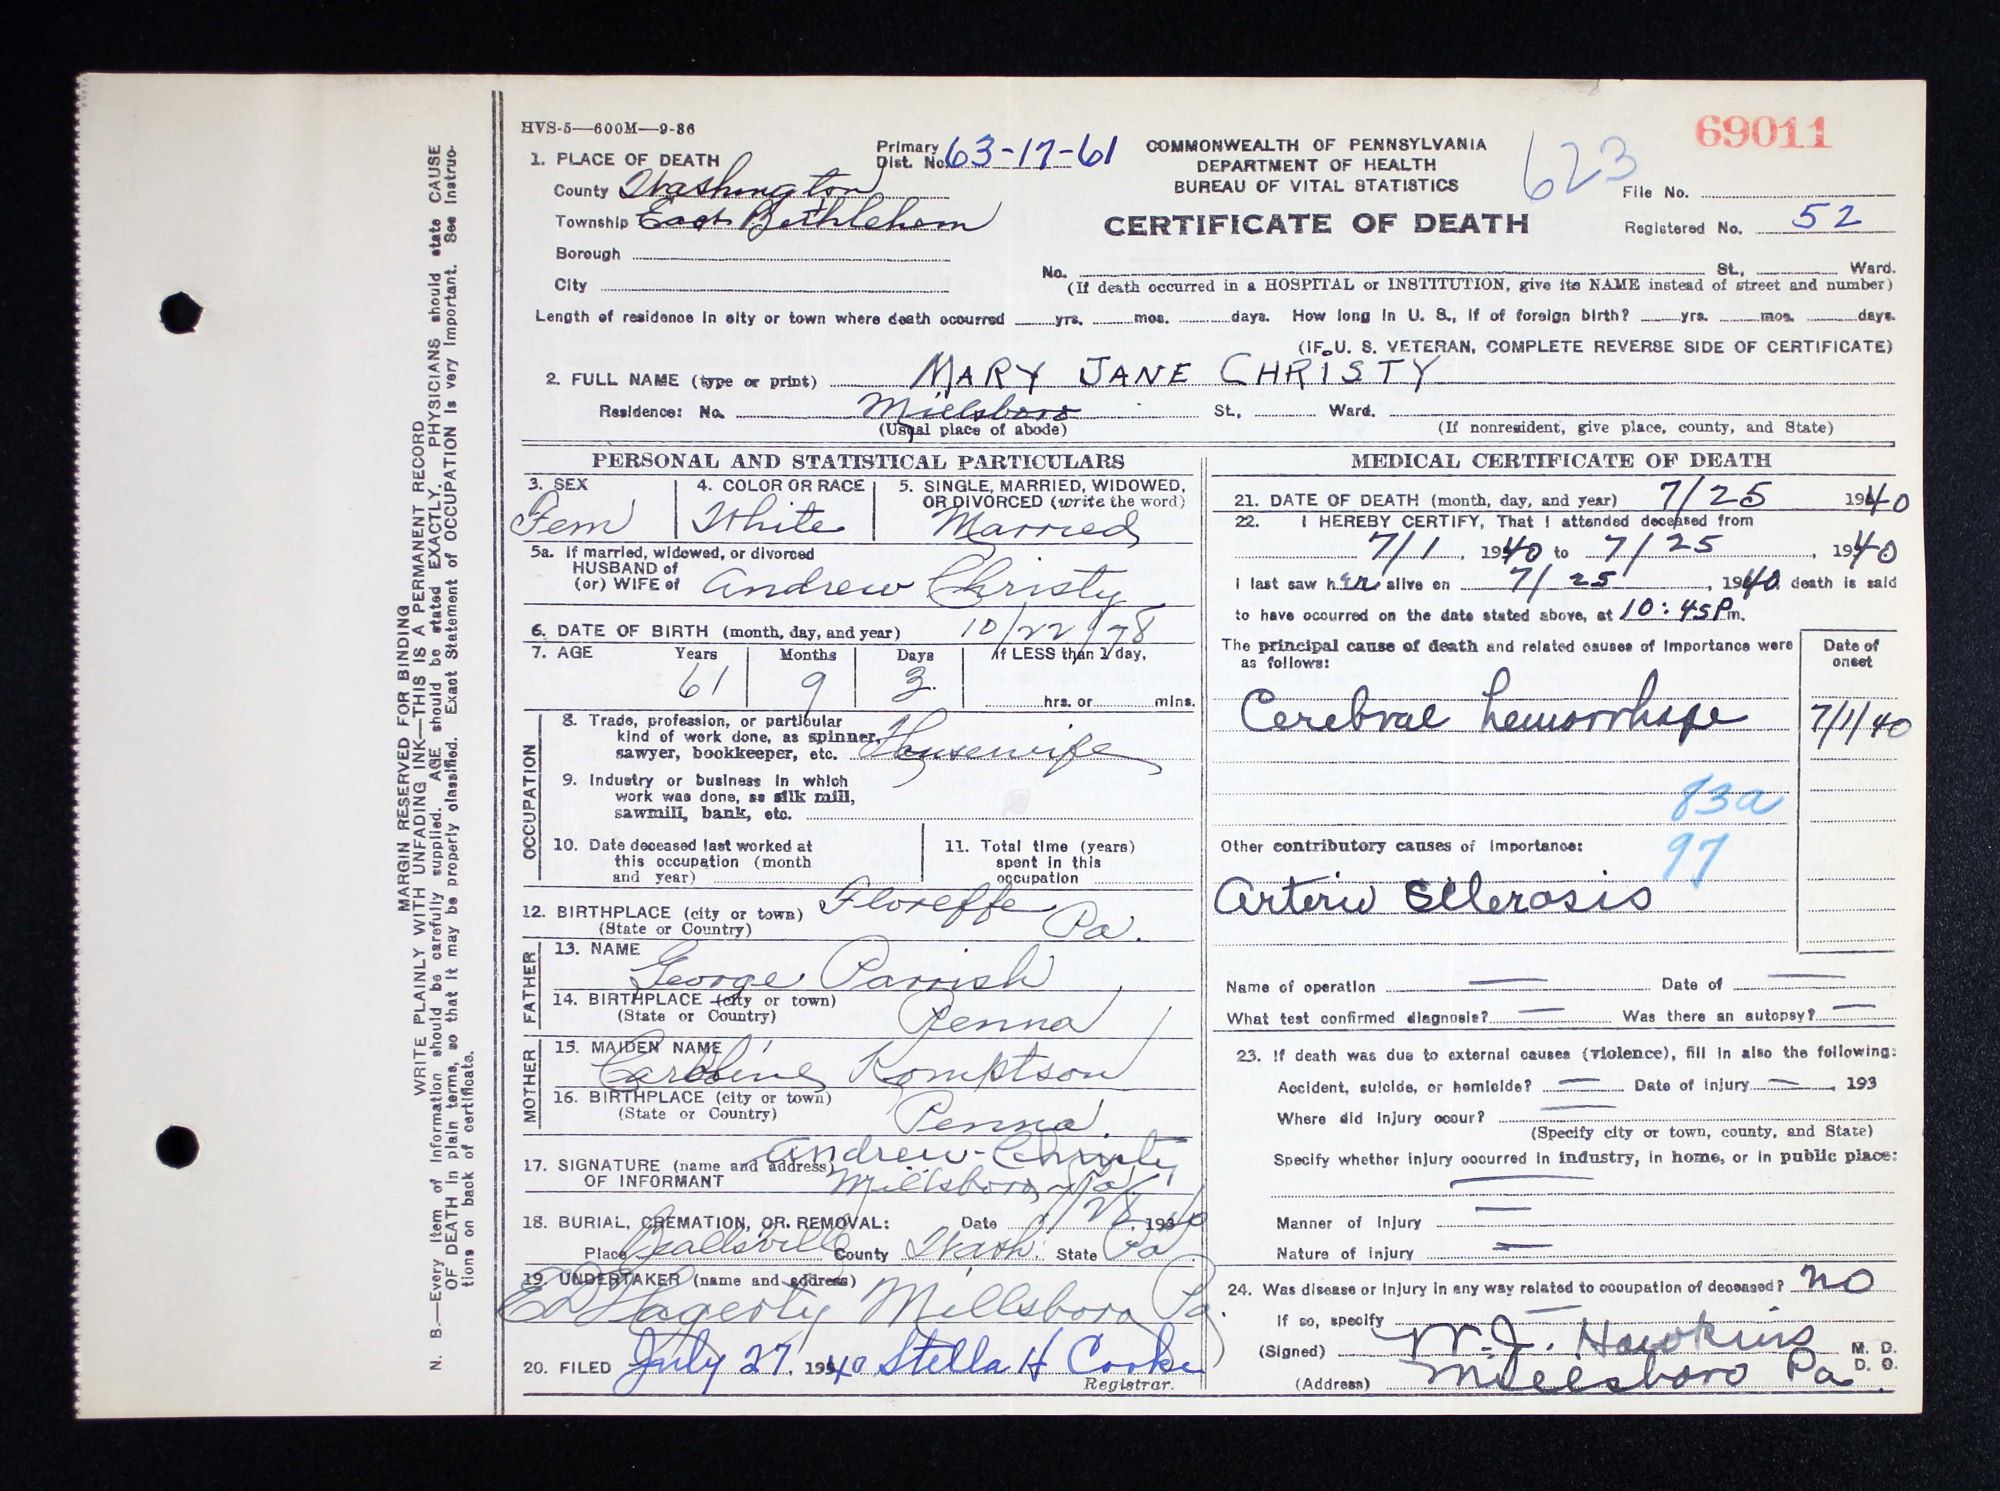 HVS-5—600M—9-36
69011
1. PLACE OF DEATH
Primary Dist. No. 63-17-61
COMMONWEALTH OF PENNSYLVANIA
DEPARTMENT OF HEALTH
BUREAU OF VITAL STATISTICS
CERTIFICATE OF DEATH
623
File No.
Registered No. 52
County Washington
Township East Bethlehem
Borough
City
No. St., Ward.
(If death occurred in a HOSPITAL or INSTITUTION, give its NAME instead of street and number)
Length of residence in city or town where death occurred yrs. mos. days. How long in U. S., if of foreign birth? yrs. mos. days.
(IF U. S. VETERAN, COMPLETE REVERSE SIDE OF CERTIFICATE)
2. FULL NAME (type or print) MARY JANE CHRISTY
Residence: No. Millsboro St., Ward.
(Usual place of abode) (If nonresident, give place, county, and State)
PERSONAL AND STATISTICAL PARTICULARS
3. SEX
Fem
4. COLOR OR RACE
White
5. SINGLE, MARRIED, WIDOWED,
OR DIVORCED (write the word)
Married
5a. If married, widowed, or divorced
HUSBAND of
(or) WIFE of Andrew Christy
6. DATE OF BIRTH (month, day, and year) 10/22/78
7. AGE Years Months Days If LESS than 1 day,
61 9 3 hrs. or mins.
OCCUPATION
8. Trade, profession, or particular
kind of work done, as spinner,
sawyer, bookkeeper, etc. Housewife
9. Industry or business in which
work was done, as silk mill,
sawmill, bank, etc.
10. Date deceased last worked at
this occupation (month
and year)
11. Total time (years)
spent in this
occupation
12. BIRTHPLACE (city or town) Floreffe
(State or Country) Pa.
FATHER
13. NAME
George Parrish
14. BIRTHPLACE (city or town)
(State or Country) Penna
MOTHER
15. MAIDEN NAME
Caroline Komptson
16. BIRTHPLACE (city or town)
(State or Country) Penna.
17. SIGNATURE (name and address) Andrew Christy
OF INFORMANT Millsboro, Pa.
18. BURIAL, CREMATION, OR REMOVAL: Date 7/28, 1940
Place Beallsville County Wash. State Pa
19. UNDERTAKER (name and address)
E D Hagerty Millsboro Pa.
20. FILED July 27, 1940 Stella H Cooke
Registrar.
MEDICAL CERTIFICATE OF DEATH
21. DATE OF DEATH (month, day, and year) 7/25 1940
22. I HEREBY CERTIFY, That I attended deceased from
7/1, 1940 to 7/25, 1940
I last saw her alive on 7/25, 1940. death is said
to have occurred on the date stated above, at 10:45 Pm.
The principal cause of death and related causes of importance were
as follows:
Date of
onset
Cerebral hemorrhage 7/1/40
83a
Other contributory causes of importance:
97
Arterio Sclerosis
Name of operation — Date of —
What test confirmed diagnosis? — Was there an autopsy? —
23. If death was due to external causes (violence), fill in also the following:
Accident, suicide, or homicide? — Date of injury — , 193
Where did injury occur? —
(Specify city or town, county, and State)
Specify whether injury occurred in industry, in home, or in public place:
—
Manner of injury —
Nature of injury —
24. Was disease or injury in any way related to occupation of deceased? no
If so, specify —
(Signed) W. J. Hawkins M. D.
D. O.
(Address) Millsboro Pa.
MARGIN RESERVED FOR BINDING
WRITE PLAINLY WITH UNFADING INK—THIS IS A PERMANENT RECORD
N. B.—Every item of information should be carefully supplied. AGE should be stated EXACTLY. PHYSICIANS should state CAUSE
OF DEATH in plain terms, so that it may be properly classified. Exact Statement of OCCUPATION is very important. See instruc-
tions on back of certificate.